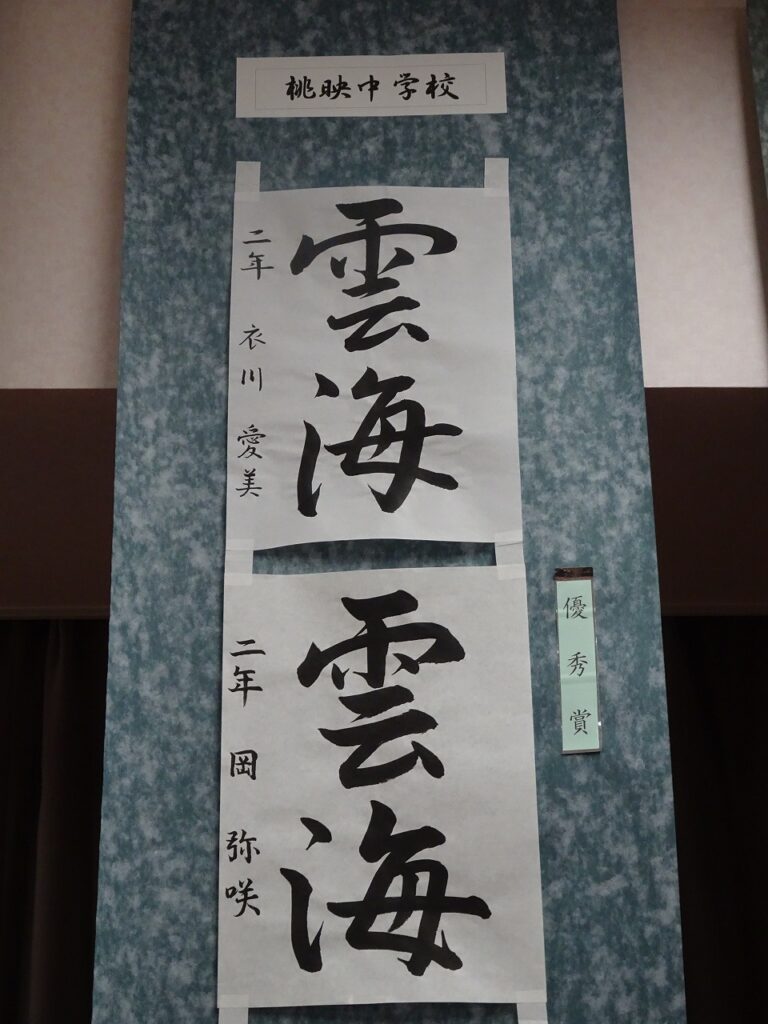 桃映中学校
雲海
二年 衣川 愛美
雲海
二年 岡 弥咲
優秀賞